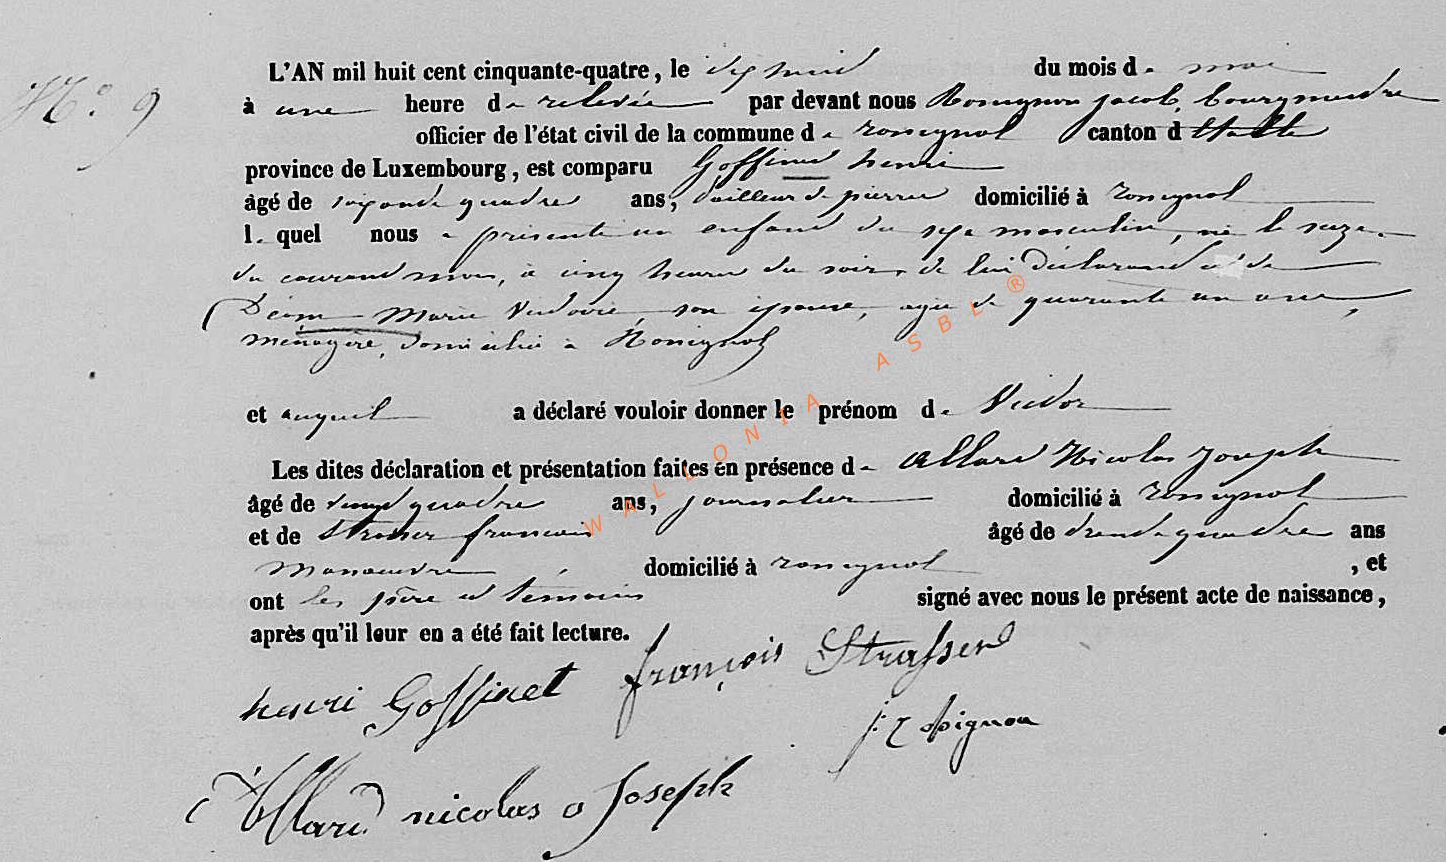 N° 9
L'AN mil huit cent cinquante-quatre, le dix huit du mois de mai
à une heure de relevée par devant nous Rossignon jacob, bourgmestre
officier de l'état civil de la commune de rossignol canton d
province de Luxembourg, est comparu Goffinet henri
âgé de soixante quatre ans, tailleur de pierres domicilié à rossignol
lequel nous a présenté un enfant du sexe masculin, né le seize
du courant mois, à cinq heures du soir, de lui déclarant et de
Marie Victoire, son épouse, agée de quarante un ans,
ménagère, domiciliée à Rossignol
et auquel a déclaré vouloir donner le prénom de Victor
Les dites déclaration et présentation faites en présence de Allard Nicolas Joseph
âgé de vingt quatre ans, journalier domicilié à rossignol
et de Strasser françois âgé de trente quatre ans
manoeuvre domicilié à rossignol, et
ont les père et témoins signé avec nous le présent acte de naissance,
après qu'il leur en a été fait lecture.
henri Goffinet françois Strasser
j: rossignon
Allard nicolas Joseph
WALLONIA ASBL ®